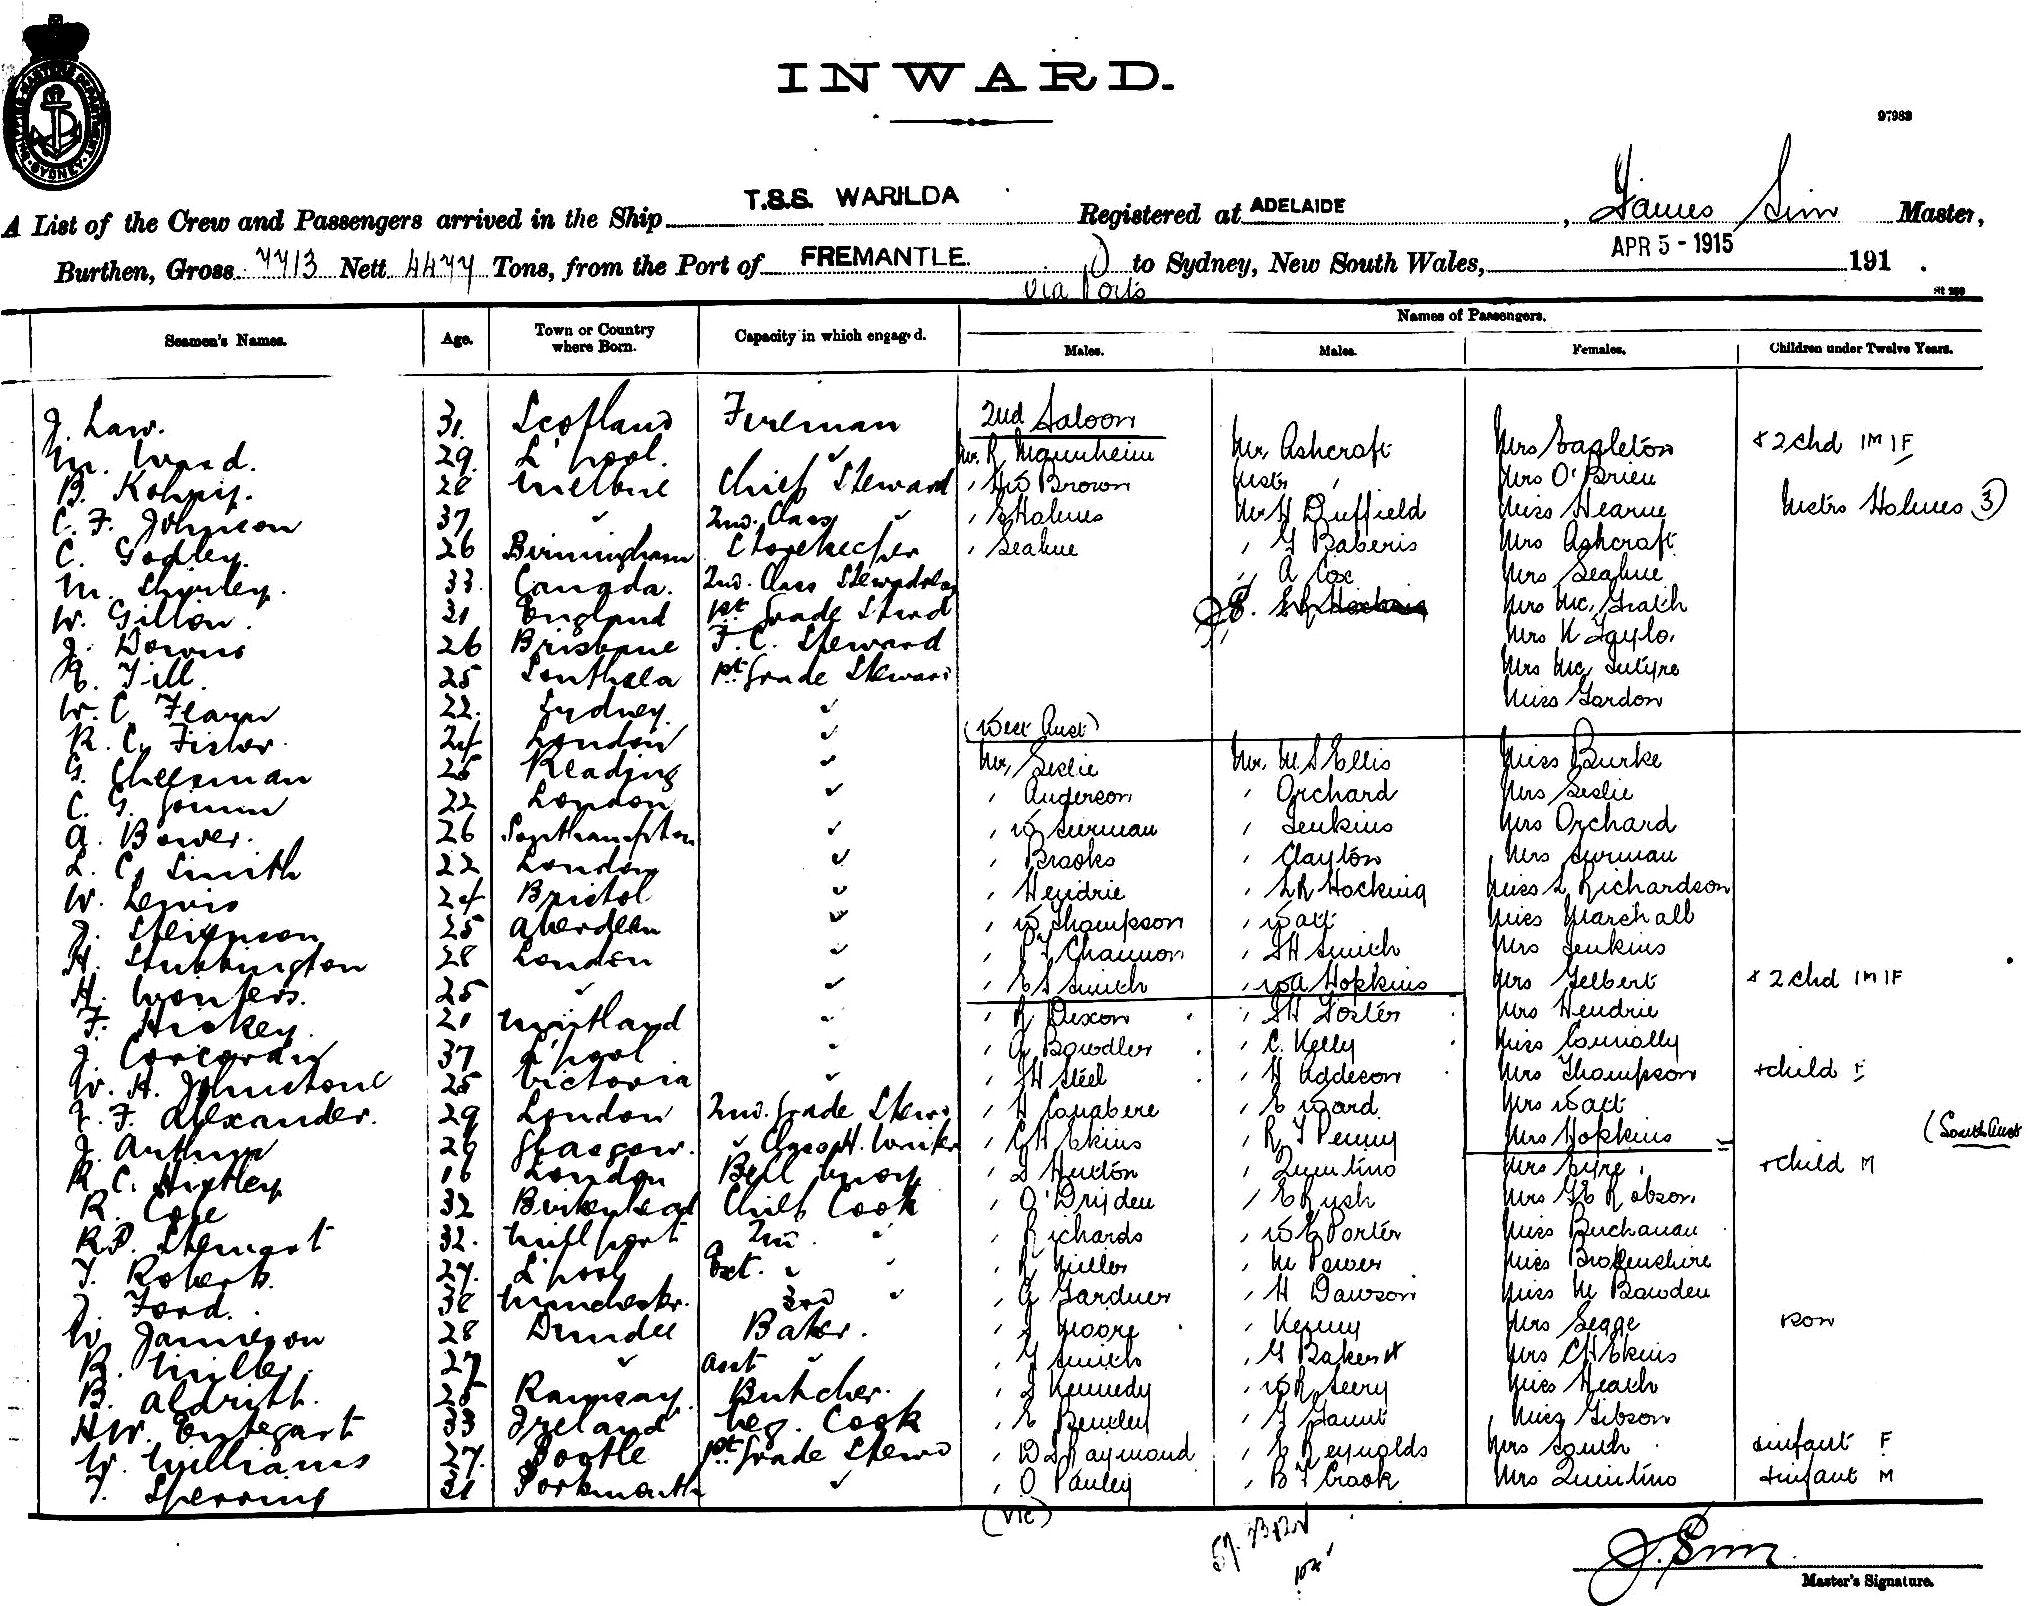 INWARD.
97983
A List of the Crew and Passengers arrived in the Ship T.S.S. WARILDA Registered at ADELAIDE, James Sim Master,
Burthen, Gross 7713 Nett 4477 Tons, from the Port of FREMANTLE. to Sydney, New South Wales, APR 5 - 1915 191 .
via Ports
Names of Passengers.
Seamen's Names. Age. Town or Country where Born. Capacity in which engaged. Males. Males. Females. Children under Twelve Years.
J. Law. 31. Scotland Fireman 2nd Saloon
M. Ward. 29. L'pool. ✓ Mr. R Mannheim Mr. Ashcroft Mrs Eagleton & 2 chd 1M 1F
B. 28 Melbne Chief Steward , Brown Mrs O'Brien
C. F. Johnson 37 ✓ 2nd. Class ✓ , Holmes Mr H Duffield Miss Hearne Mstrs Holmes (3)
C. Godley. 26 Birmingham Storekeeper , Seahue , G Baberis Mrs Ashcroft
M. 33 Canada. 2nd. Class , A Cox Mrs Seahue
W. Gillon. 31 England 1st Grade Stwd Mrs Mc. Grath
J. Downs 26 Brisbane F. C. Steward Mrs K Taylor
Till. 25 1st Grade Steward Mrs Mc Intyre
W. C. Fearn 22. Sydney. ✓ Miss Gordon
R. C. 24 London ✓ (West Aust)
G. Cheesman 25 Reading ✓ Mr. Leslie Mr. M S Ellis Miss Burke
C. G. 22 London ✓ , Anderson , Orchard Mrs Leslie
A. Bower. 26 Southampton ✓ , W Surman , Jenkins Mrs Orchard
L. C. Smith 22 London ✓ , Brooks , Clayton Mrs Surman
W. Lewis 24 Bristol ✓ , Hendrie , Hocking Miss L Richardson
J. 25 Aberdeen ✓ , W Thompson , Watt Miss Marshall
H. Stubbington 28 London ✓ , Channon , Smith Mrs Jenkins
H. Wonters. 25 ✓ ✓ , E S Smith , W A Hopkins Mrs Gelbert & 2 chd 1M 1F
F. Hickey. 21 Maitland ✓ , R Dixon , Foster Mrs Hendrie
J. Corcoran 37 L'pool ✓ , A Bowdler , C. Kelly Miss Connolly
W. H. Johnstone 25 Victoria ✓ , Steel , H Addecon Mrs Thompson + child F
F. Alexander. 29 London 2nd. Grade , H , E Ward Mrs Watt
J. 29 Glasgow. , C H Ekins , R J Penny Mrs Hopkins (South Aust
R. C. 16 London Bell Boy , Hutton , Quintino Mrs Eyre + child M
R. Cole 32 Birkenhead Chief Cook , O'Drijden , E Rush Mrs G E Robson
R.P. Stewart 32. Millport 2nd. " , Richards , W E Porter Miss Buchanan
Roberts. 27. L'pool " , R Miller , M Power Miss Brokenshire
J. Ford. 38 Manchester. 3rd " , G Gardner , H Dawson Miss M Bowden
W. Jamieson 28 Dundee Baker. , Moore , Kenny Mrs Segge son
R. Miller. 27 ✓ Asst ✓ , Smith , G Baker Mrs C H Ekins
B. Aldritt. 25 Ramsay. Butcher. , Kennedy , W R Miss Heath
H.W. Entegart 33 Ireland Veg. Cook , E , Gaunt Miss Gibson
W. Williams 27. Bootle 1st Grade , Raymond , E Reynolds Mrs South infant F
31 Portsmouth ✓ , O Pauley , B Crook Mrs Quintino + infant M
(Vic)
J. Sim
Master's Signature.